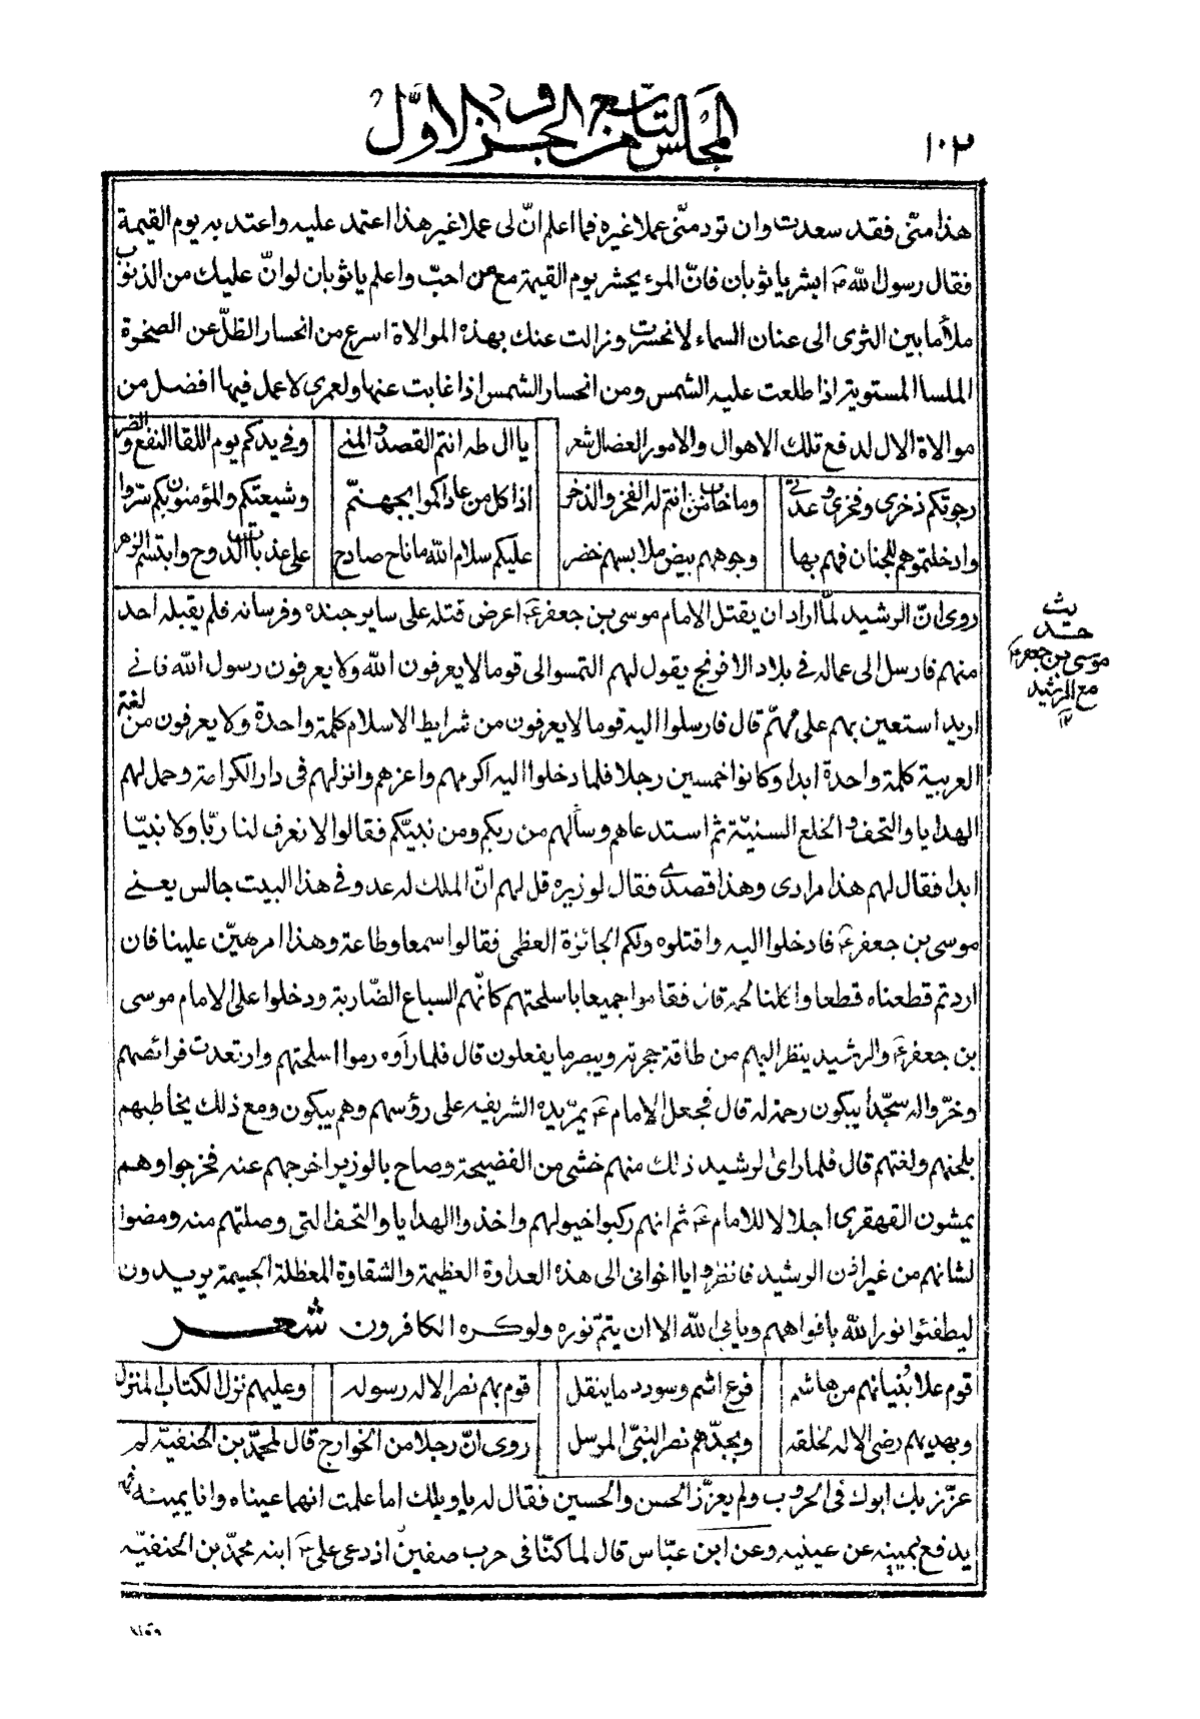 ١٠٢
المجلس التاسع من الجزء الاول
هذا منّي فقد سعدت وان تود منّي عملا غيره فما اعلم انّ لى عملا غير هذا اعتمد عليه واعتد به يوم القيمة
فقال رسول الله ص ابشر يا ثوبان فانّ المرء يحشر يوم القيمة مع من احبّ واعلم يا ثوبان لو انّ عليك من الذنوب
ملأ ما بين الثرى الى عنان السماء لانحسرت وزالت عنك بهذه الموالاة اسرع من انحسار الظلّ عن الصخرة
الملسا المستوية اذا طلعت عليه الشمس ومن انحسار الشمس اذا غابت عنها ولعمرى لا عمل فيها افضل من
موالاة الال لدفع تلك الاهوال والامور العضال شعر
يا ال طه انتم القصد والمنى وفي يدكم يوم اللقا النفع والضر
رجوتكم ذخرى وفخرى وعدتى وما خاب من انتم له الفخر والذخر اذا كل من عاداكموا بجهنّم وشيعتكم والمؤمنون بكم سرّوا
وادخلتموهم للجنان فهم بها وجوههم بيض ملابسهم خضر عليكم سلام الله ما ناح صادح على عذبات الدوح وابتسم الزهر
روى انّ الرشيد لمّا اراد ان يقتل الامام موسى بن جعفر ع اعرض قتله على ساير جنده وفرسانه فلم يقبله احد
منهم فارسل الى عماله في بلاد الافرنج يقول لهم التمسوا لى قوما لا يعرفون الله ولا يعرفون رسول الله فاني
اريد استعين بهم على مهمّ قال فارسلوا اليه قوما لا يعرفون من شرايط الاسلام كلمة واحدة ولا يعرفون من لغة
العربية كلمة واحدة ابدا وكانوا خمسين رجلا فلما دخلوا اليه اكرمهم واعزهم وانزلهم فى دار الكرامة وحمل لهم
الهدايا والتحف والخلع السنيّة ثم استدعاهم وسألهم من ربكم ومن نبيّكم فقالوا لا نعرف لنا ربّا ولا نبيّا
ابدا فقال لهم هذا مرادى وهذا قصدى فقال لوزيره قل لهم انّ الملك له عدو في هذا البيت جالس يعني
موسى بن جعفر ع فادخلوا اليه واقتلوه ولكم الجائزة العظمى فقالوا سمعا وطاعة وهذا امر هيّن علينا فان
اردتم قطعناه قطعا واكلنا لحمه قال فقاموا جميعا باسلحتهم كانّهم السباع الضّاربة ودخلوا على الامام موسى
بن جعفر ع والرشيد ينظر اليهم من طاقة حجرته ويبصر ما يفعلون قال فلما رأوه رموا اسلحتهم وارتعدت فرائصهم
وخرّوا له سجّدا يبكون رحمة له قال فجعل الامام ع يمرّ يده الشريفه على رؤسهم وهم يبكون ومع ذلك يخاطبهم
بلحنهم ولغتهم قال فلما راى الرشيد ذلك منهم خشى من الفضيحة وصاح بالوزير اخرجهم عنه فخرجوا وهم
يمشون القهقرى اجلالا للامام ع ثم انهم ركبوا خيولهم واخذوا الهدايا والتحف التى وصلتهم منه ومضوا
لشانهم من غير اذن الرشيد فانظروا يا اخوانى الى هذه العداوة العظيمة والشقاوة المعظلة الجسيمة يريدون
ليطفئوا نور الله بافواههم ويابى الله الا ان يتم نوره ولو كره الكافرون شعر
قوم علا بنيانهم من هاشم فرع اشم وسودد ما ينقل قوم بهم نصر الاله رسوله وعليهم نزل الكتاب المنزل
وبهديهم رضى الاله لخلقه وبجدّهم نصر النبيّ المرسل
روى انّ رجلا من الخوارج قال لمحمد بن الحنفيّة لم
عزّز بك ابوك فى الحروب ولم يعزّز الحسن والحسين فقال له يا ويلك اما علمت انهما عيناه وانا يمينه فهو
يدفع بيمينه عن عينيه وعن ابن عبّاس قال لما كنّا فى حرب صفين اذ دعى على ع ابنه محمد بن الحنفيّه
حديث
موسى بن جعفر ع
مع الرشيد
١٢